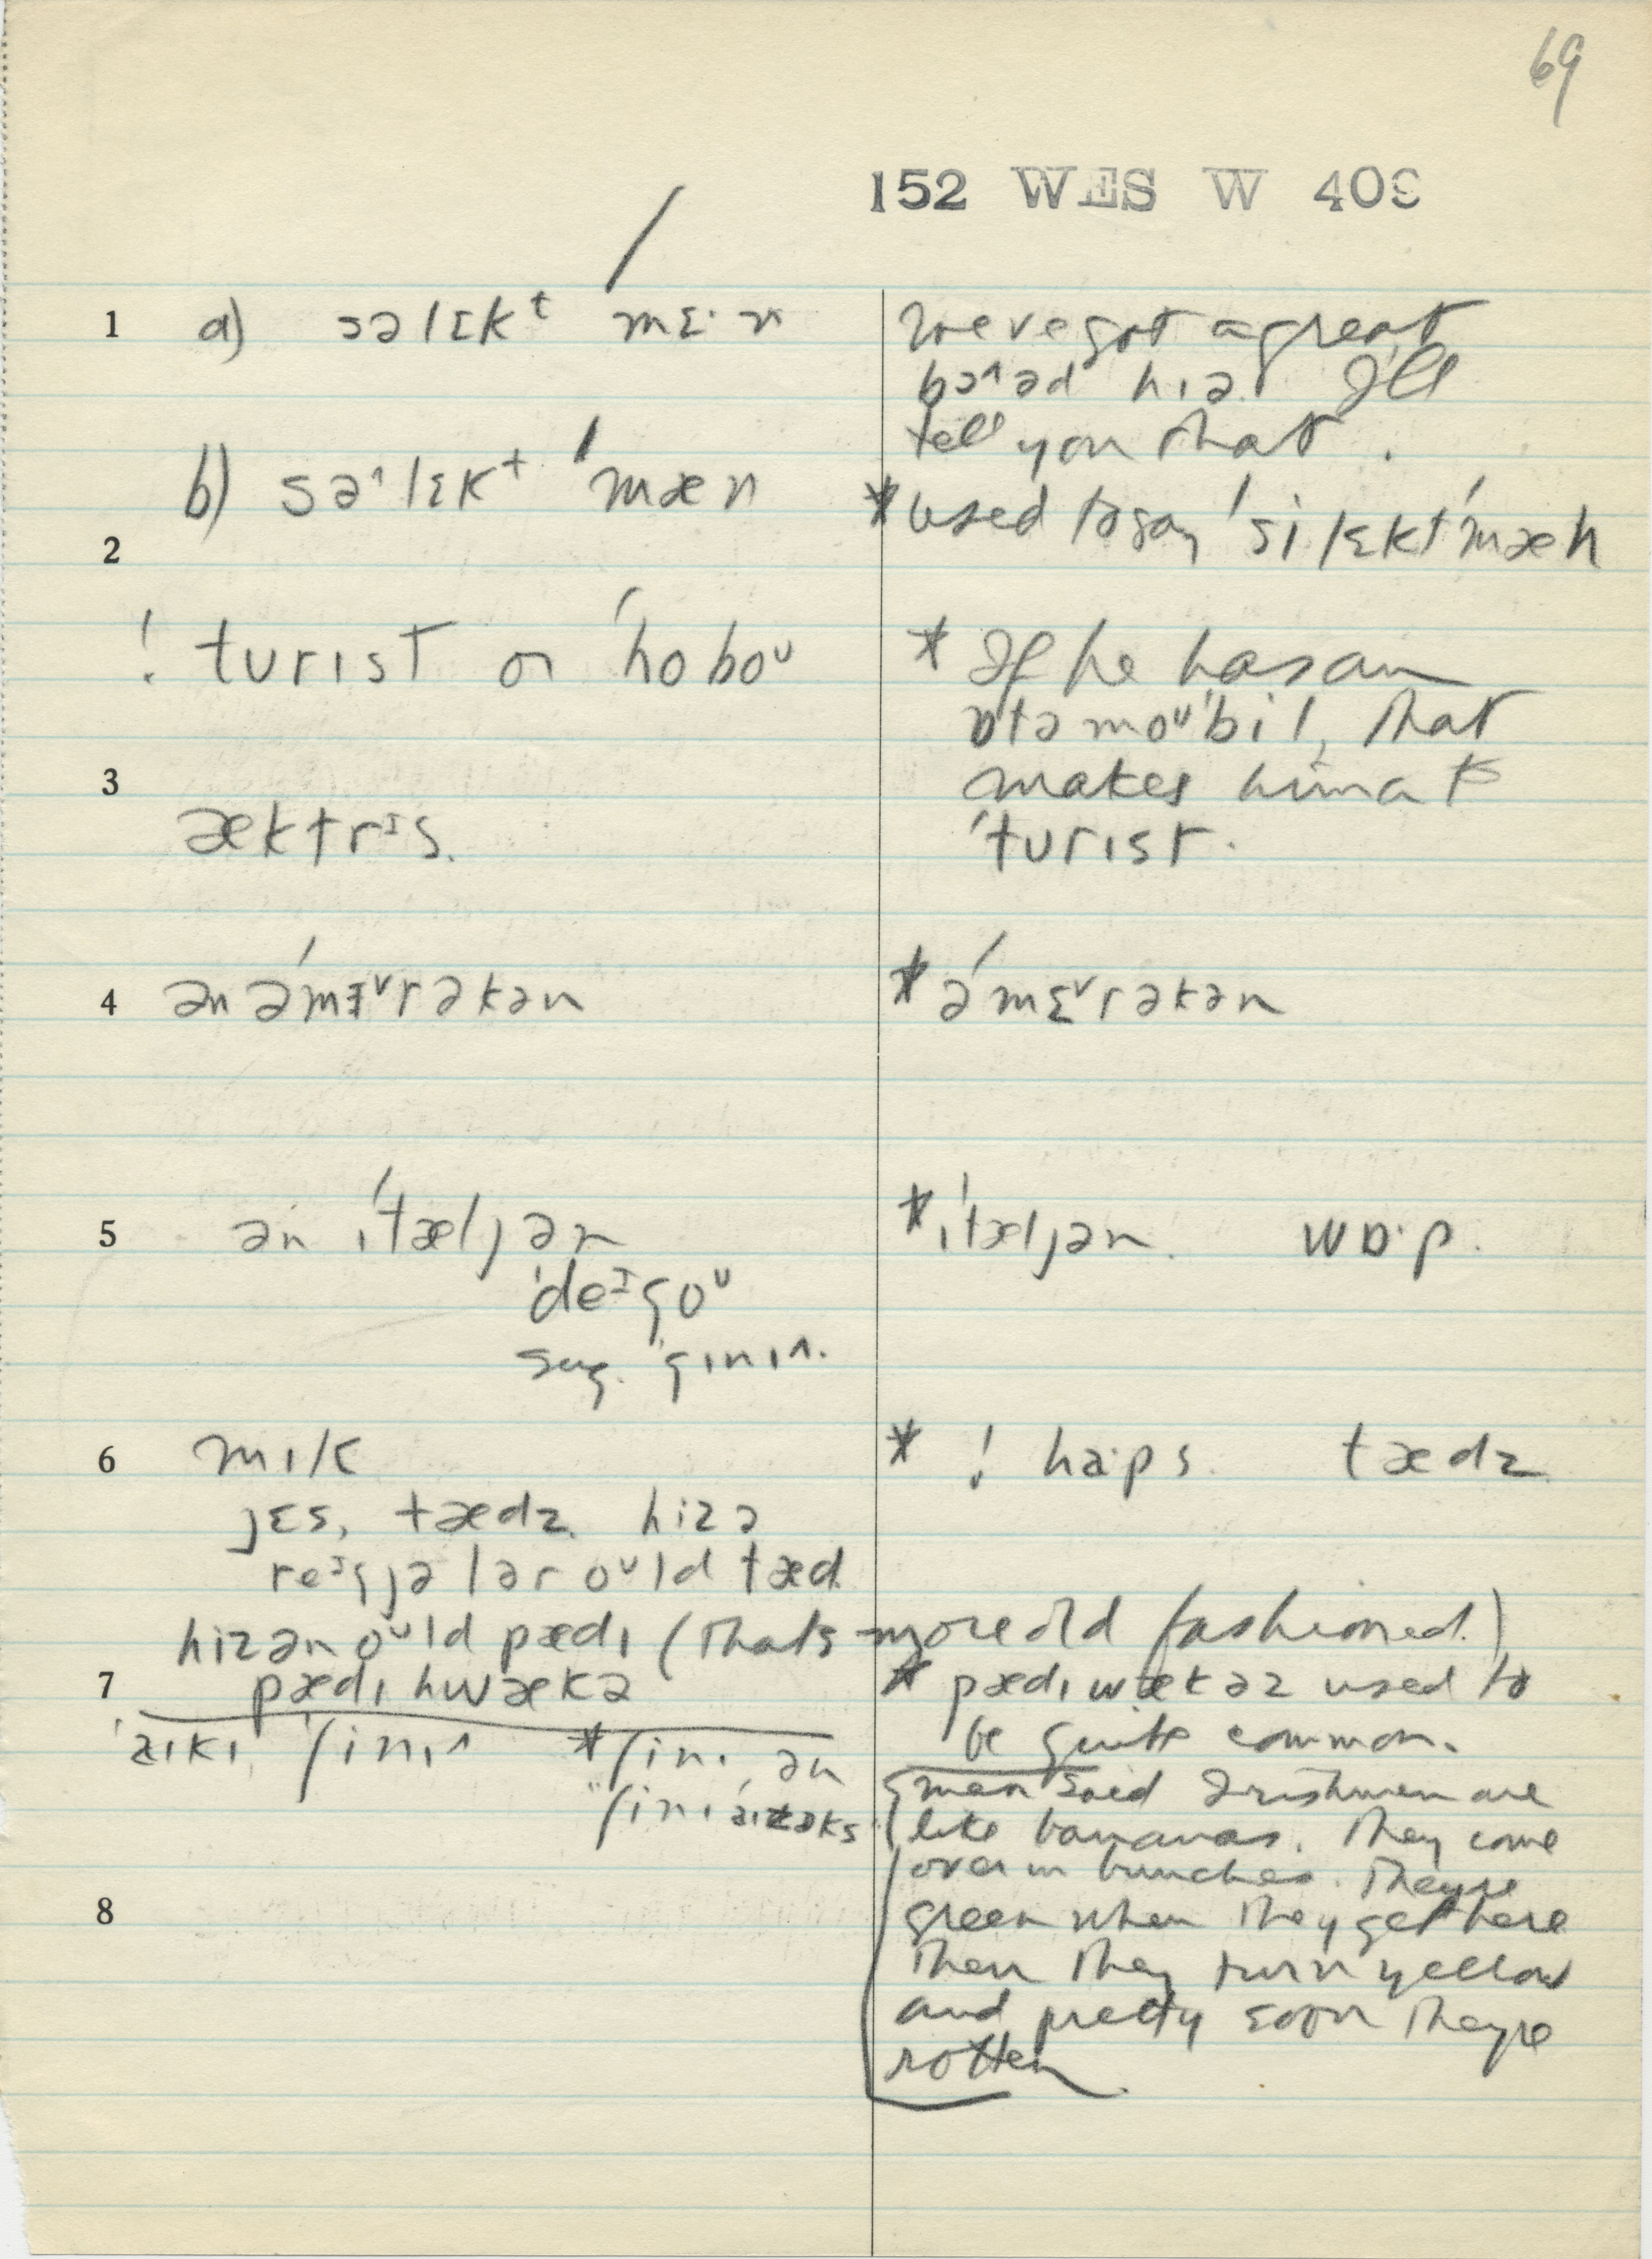 69
152 WES W 409
1 a) səlɛkᵗ mɛ·n
We've got a great
bɔ^əd hɪə. I'll
tell you that.
b) sə^lɛkᵗ ˈmæn
* used to say ˈsilɛktˈmæn
2
! turɪst or ˈhoboᵁ
* If he has an
ɒtəmoᵁˈbil, that
makes him a
ˈturɪst.
3
æktrᶦs.
4 ən əˈmɛ˅rəkən
* əˈmɛ˅rəkən
5 ən ɪˈtæljən
* ɪˈtæljən. wɒ·p.
ˈdeᶦgoᵁ
sug. ˈgɪnɪ^.
6 mɪk
* ! ha·ps. tædz
jɛs, tædz. hizə
reᶦgjələr oᵁld tæd.
hizən oᵁld pædɪ (that's more old fashioned.)
7 pædɪ hwækə
* pædɪwækəz used to
be quite common.
ˈaɪkɪ, ˈʃinɪ^ * ʃinɪ, ən
man said Irishmen are
like bananas. They come
over in bunches. They're
8
green when they get here
Then they turn yellow
and pretty soon they're
rotten.